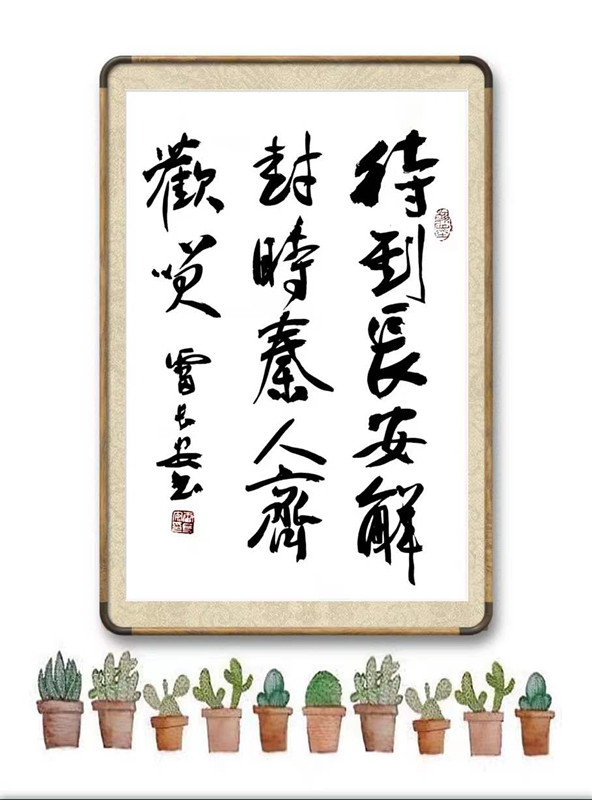 待到長安解
封時秦人齊
歡笑
雷長安书